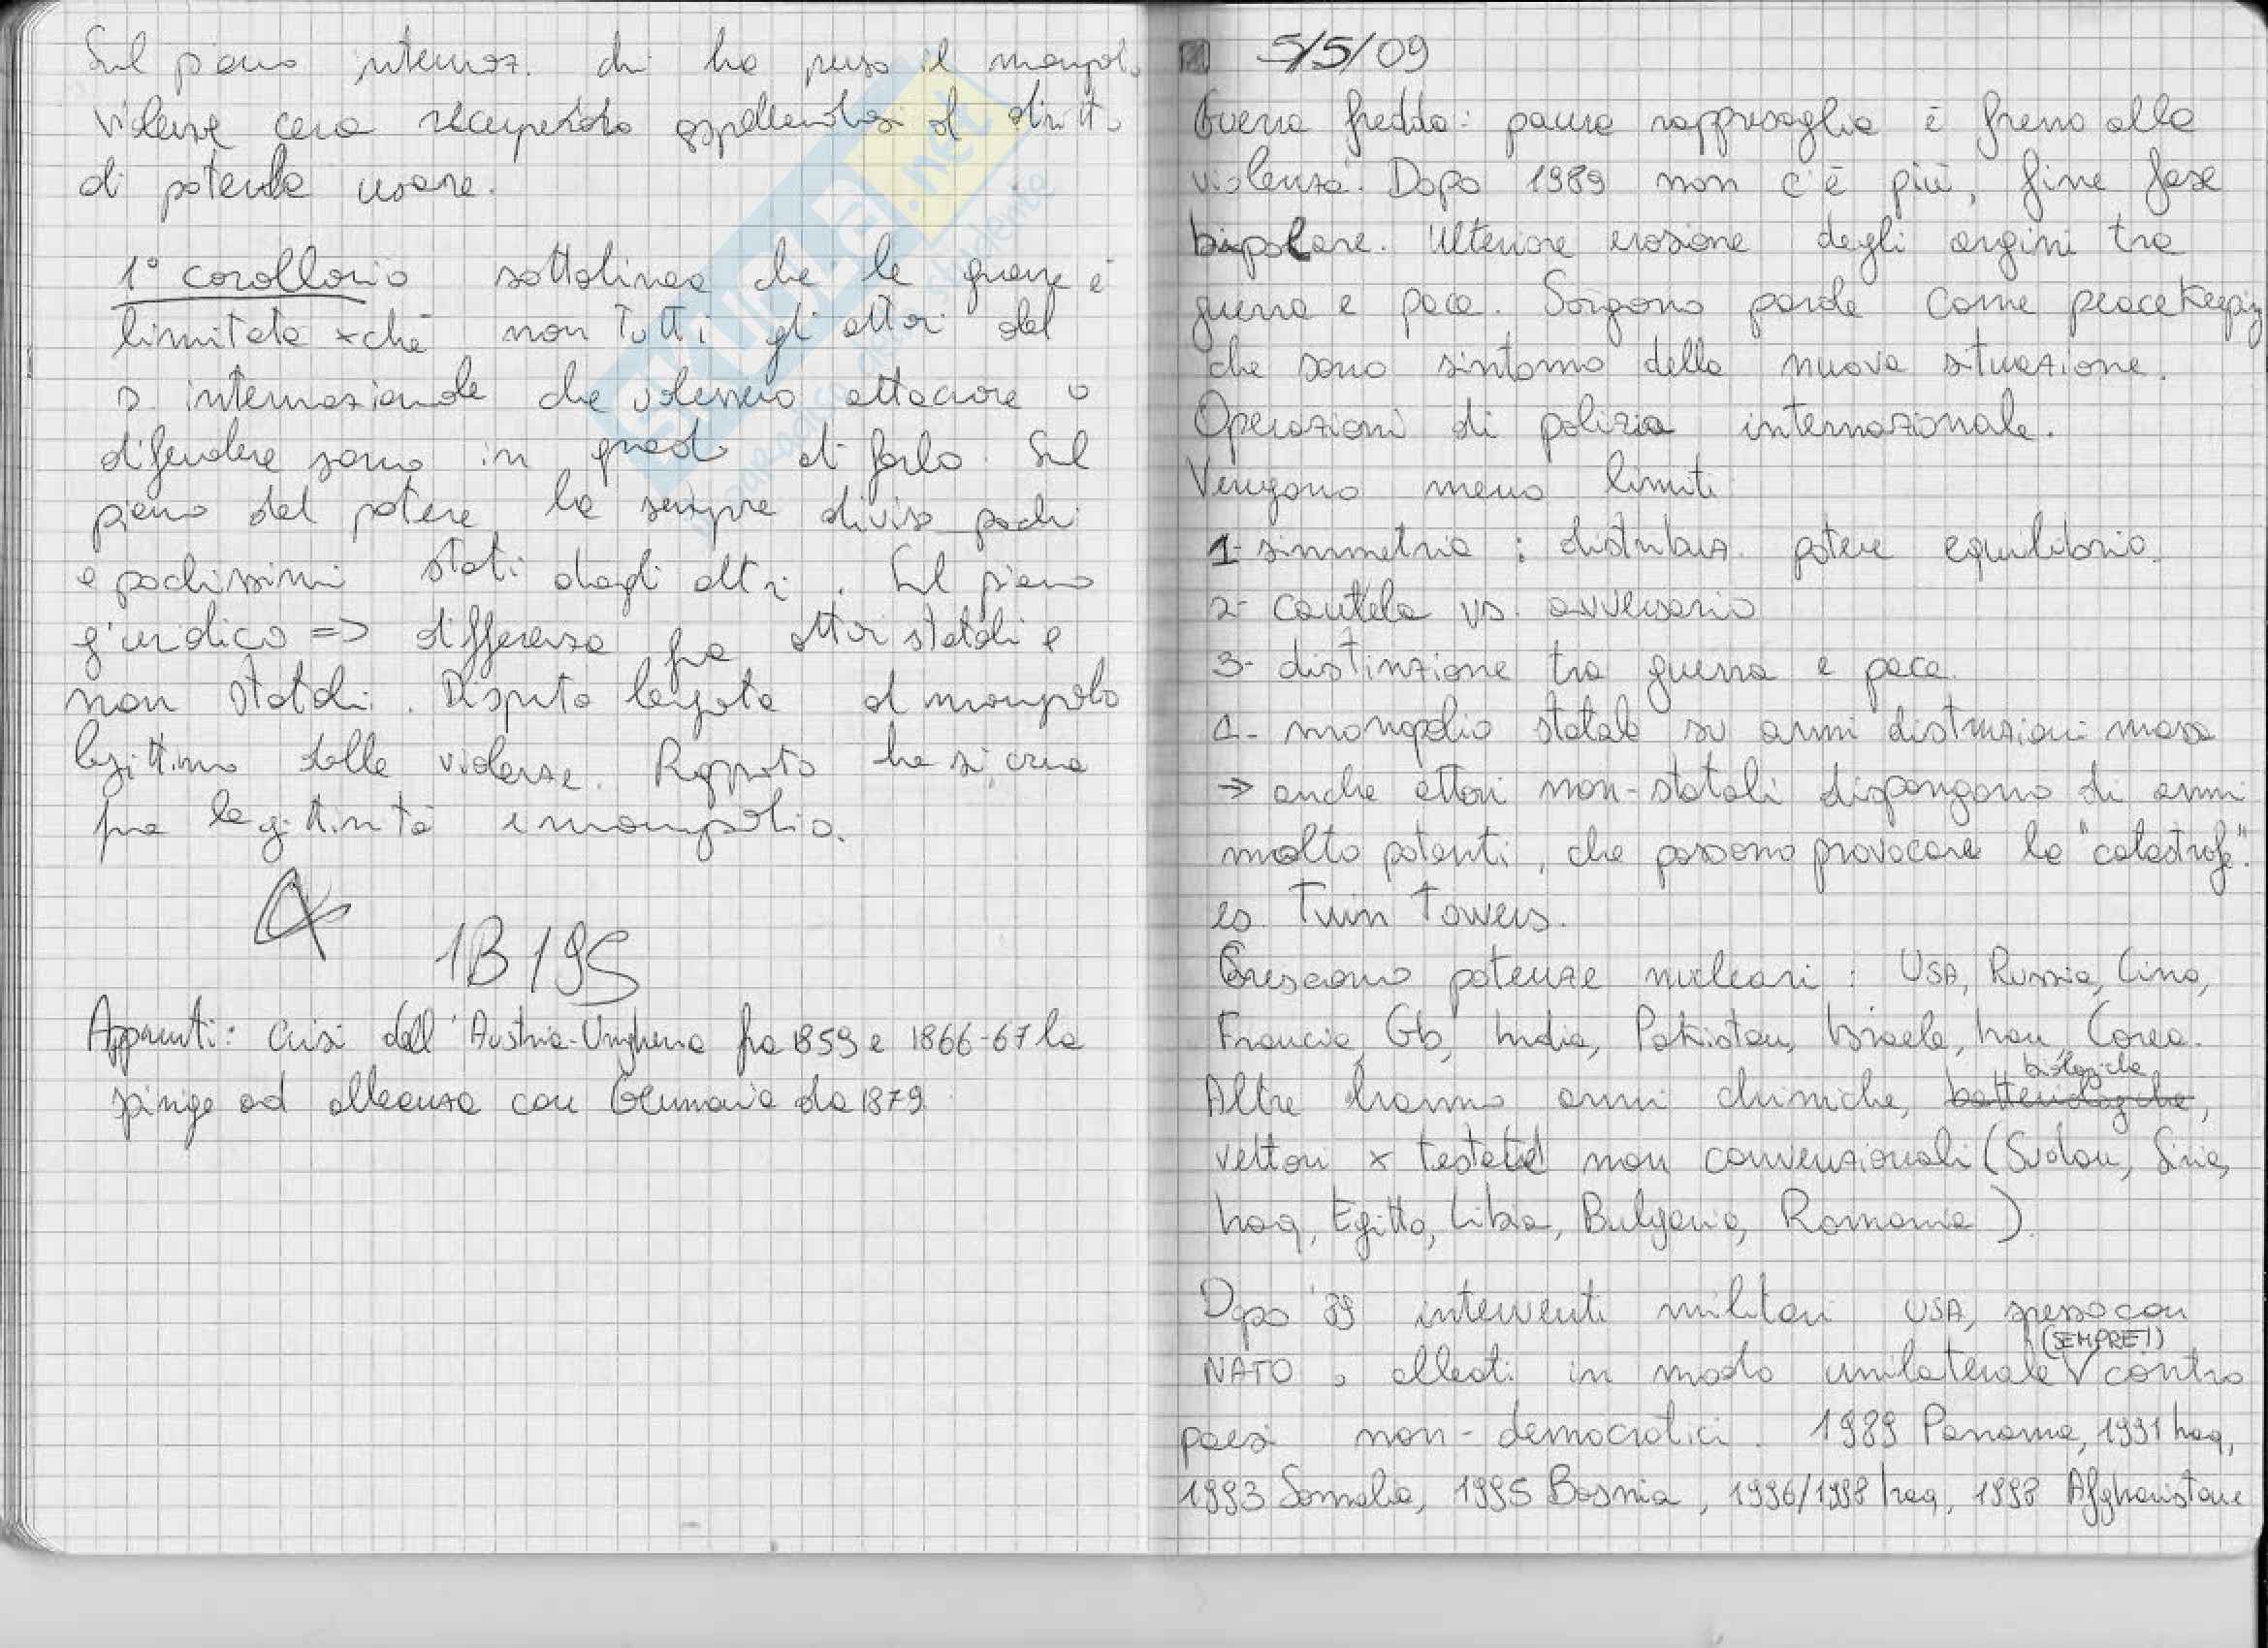 Sul piano internaz. chi ha perso il monopol.
violenze cerca recuperarlo appellandosi al diritto
di poterle usare.
1° corollario sottolinea che la guerra è
limitata xchè non tutti gli attori del
s. internazionale che volessero attaccare o
difendere sono in grado di farlo. Sul
piano del potere ha sempre diviso pochi
e pochissimi stati dagli altri. Sul piano
giuridico => differenza fra attori statali e
non statali. Disputa legata al monopolo
legittimo delle violenze. Rapporto che si crea
fra legittimità e monopolio.
1B 195
Appunti: Crisi dell'Austria-Ungheria fra 1859 e 1866-67 la
spinge ad alleanza con Germania da 1879
5/5/09
Guerra fredda: paura rappresaglia è freno alla
violenza. Dopo 1989 non c'è più, fine fase
bipolare. Ulteriore erosione degli argini tra
guerra e pace. Sorgono parole come peacekeeping
che sono sintomo della nuova situazione.
Operazioni di polizia internazionale.
Vengono meno limiti
1- simmetria : distribuz. potere equilibrio.
2- cautela vs. avversario
3- distinzione tra guerra e pace.
4- monopolio statale su armi distruzioni massa
→ anche attori non-statali dispongono di armi
molto potenti, che possono provocare la "catastrofe".
es. Twin Towers.
Crescono potenze nucleari : USA, Russia, Cina,
Francia, Gb, India, Pakistan, Israele, Iran, Corea.
Altre hanno armi chimiche, batteriologiche biologiche,
vettori x testate non convenzionali (Sudan, Siria,
Iraq, Egitto, Libia, Bulgaria, Romania).
Dopo '89 interventi militari USA, spesso con
NATO o alleati in modo unilaterale (SEMPRE!) contro
paesi non-democratici. 1989 Panama, 1991 Iraq,
1993 Somalia, 1995 Bosnia, 1996/1998 Iraq, 1998 Afghanistan
SKUOLA.net